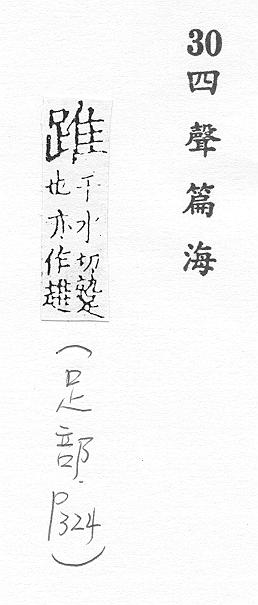 30 四聲篇海
踓
千水切蹵
也亦作趡
(足部.P324)